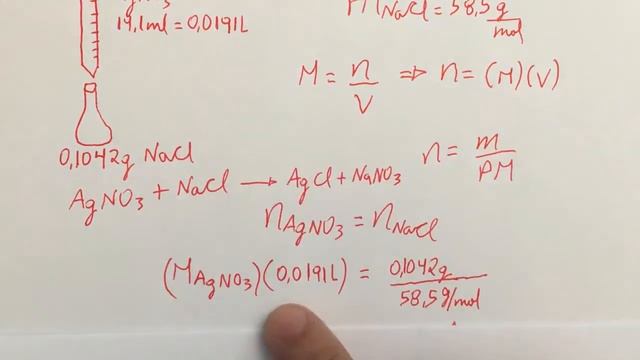 AgNO3
19,1ml = 0,0191L
PM NaCl = 58,5 g/mol
M = n/V ⇒ n = (M)(V)
0,1042g NaCl
n = m/PM
AgNO3 + NaCl → AgCl + NaNO3
nAgNO3 = nNaCl
(MAgNO3)(0,0191L) = 0,1042g/58,5g/mol